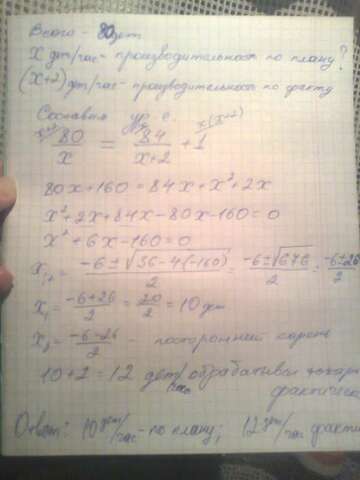 Всего - 80 дет
х дет/час - производительност по плану?
(х+2) дет/час - производительност по факту
Составим ур. е.
х+2 80/х = 84/х+2 + 1 х(х+2)
80х+160=84х+х²+2х
х²+2х+84х-80х-160=0
х²+6х-160=0
х₁,₂ = -6±√36-4(-160)/2 = -6±√676/2 = -6±26/2
х₁ = -6+26/2 = 20/2 = 10 дет
х₂ = -6-26/2 - посторонний корень
10+2=12 дет/час обрабатывал токарь
фактическ
Ответ: 10 дет/час - по плану; 12 дет/час факти